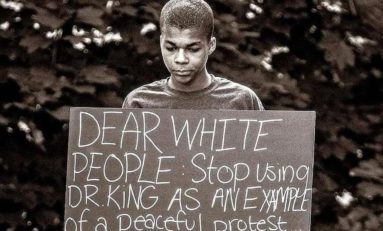 DEAR WHITE
PEOPLE: Stop using
DR.KING AS AN EXAMPLE
of a peaceful protest...